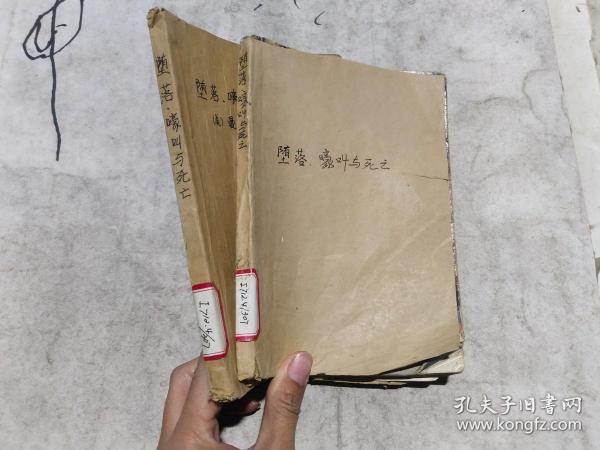 堕落·嚎叫与死亡
I712.4/307
堕落、嚎
堕落·嚎叫与死亡
I712.4/307
堕落、嚎叫与死亡
孔夫子旧书网
www.kongfz.com